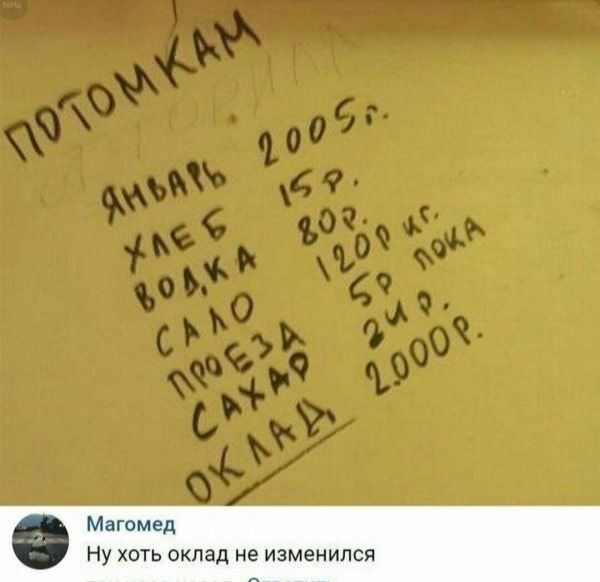 БОРЩ
ПОТОМКАМ
ЯНВАРЬ 2005г.
ХЛЕБ 15р.
ВОДКА 80р.
САЛО 120р кг.
ПРОЕЗД 5р ПОКА
САХАР 24 р.
ОКЛАД 2.000р.
Магомед
Ну хоть оклад не изменился
Ответить